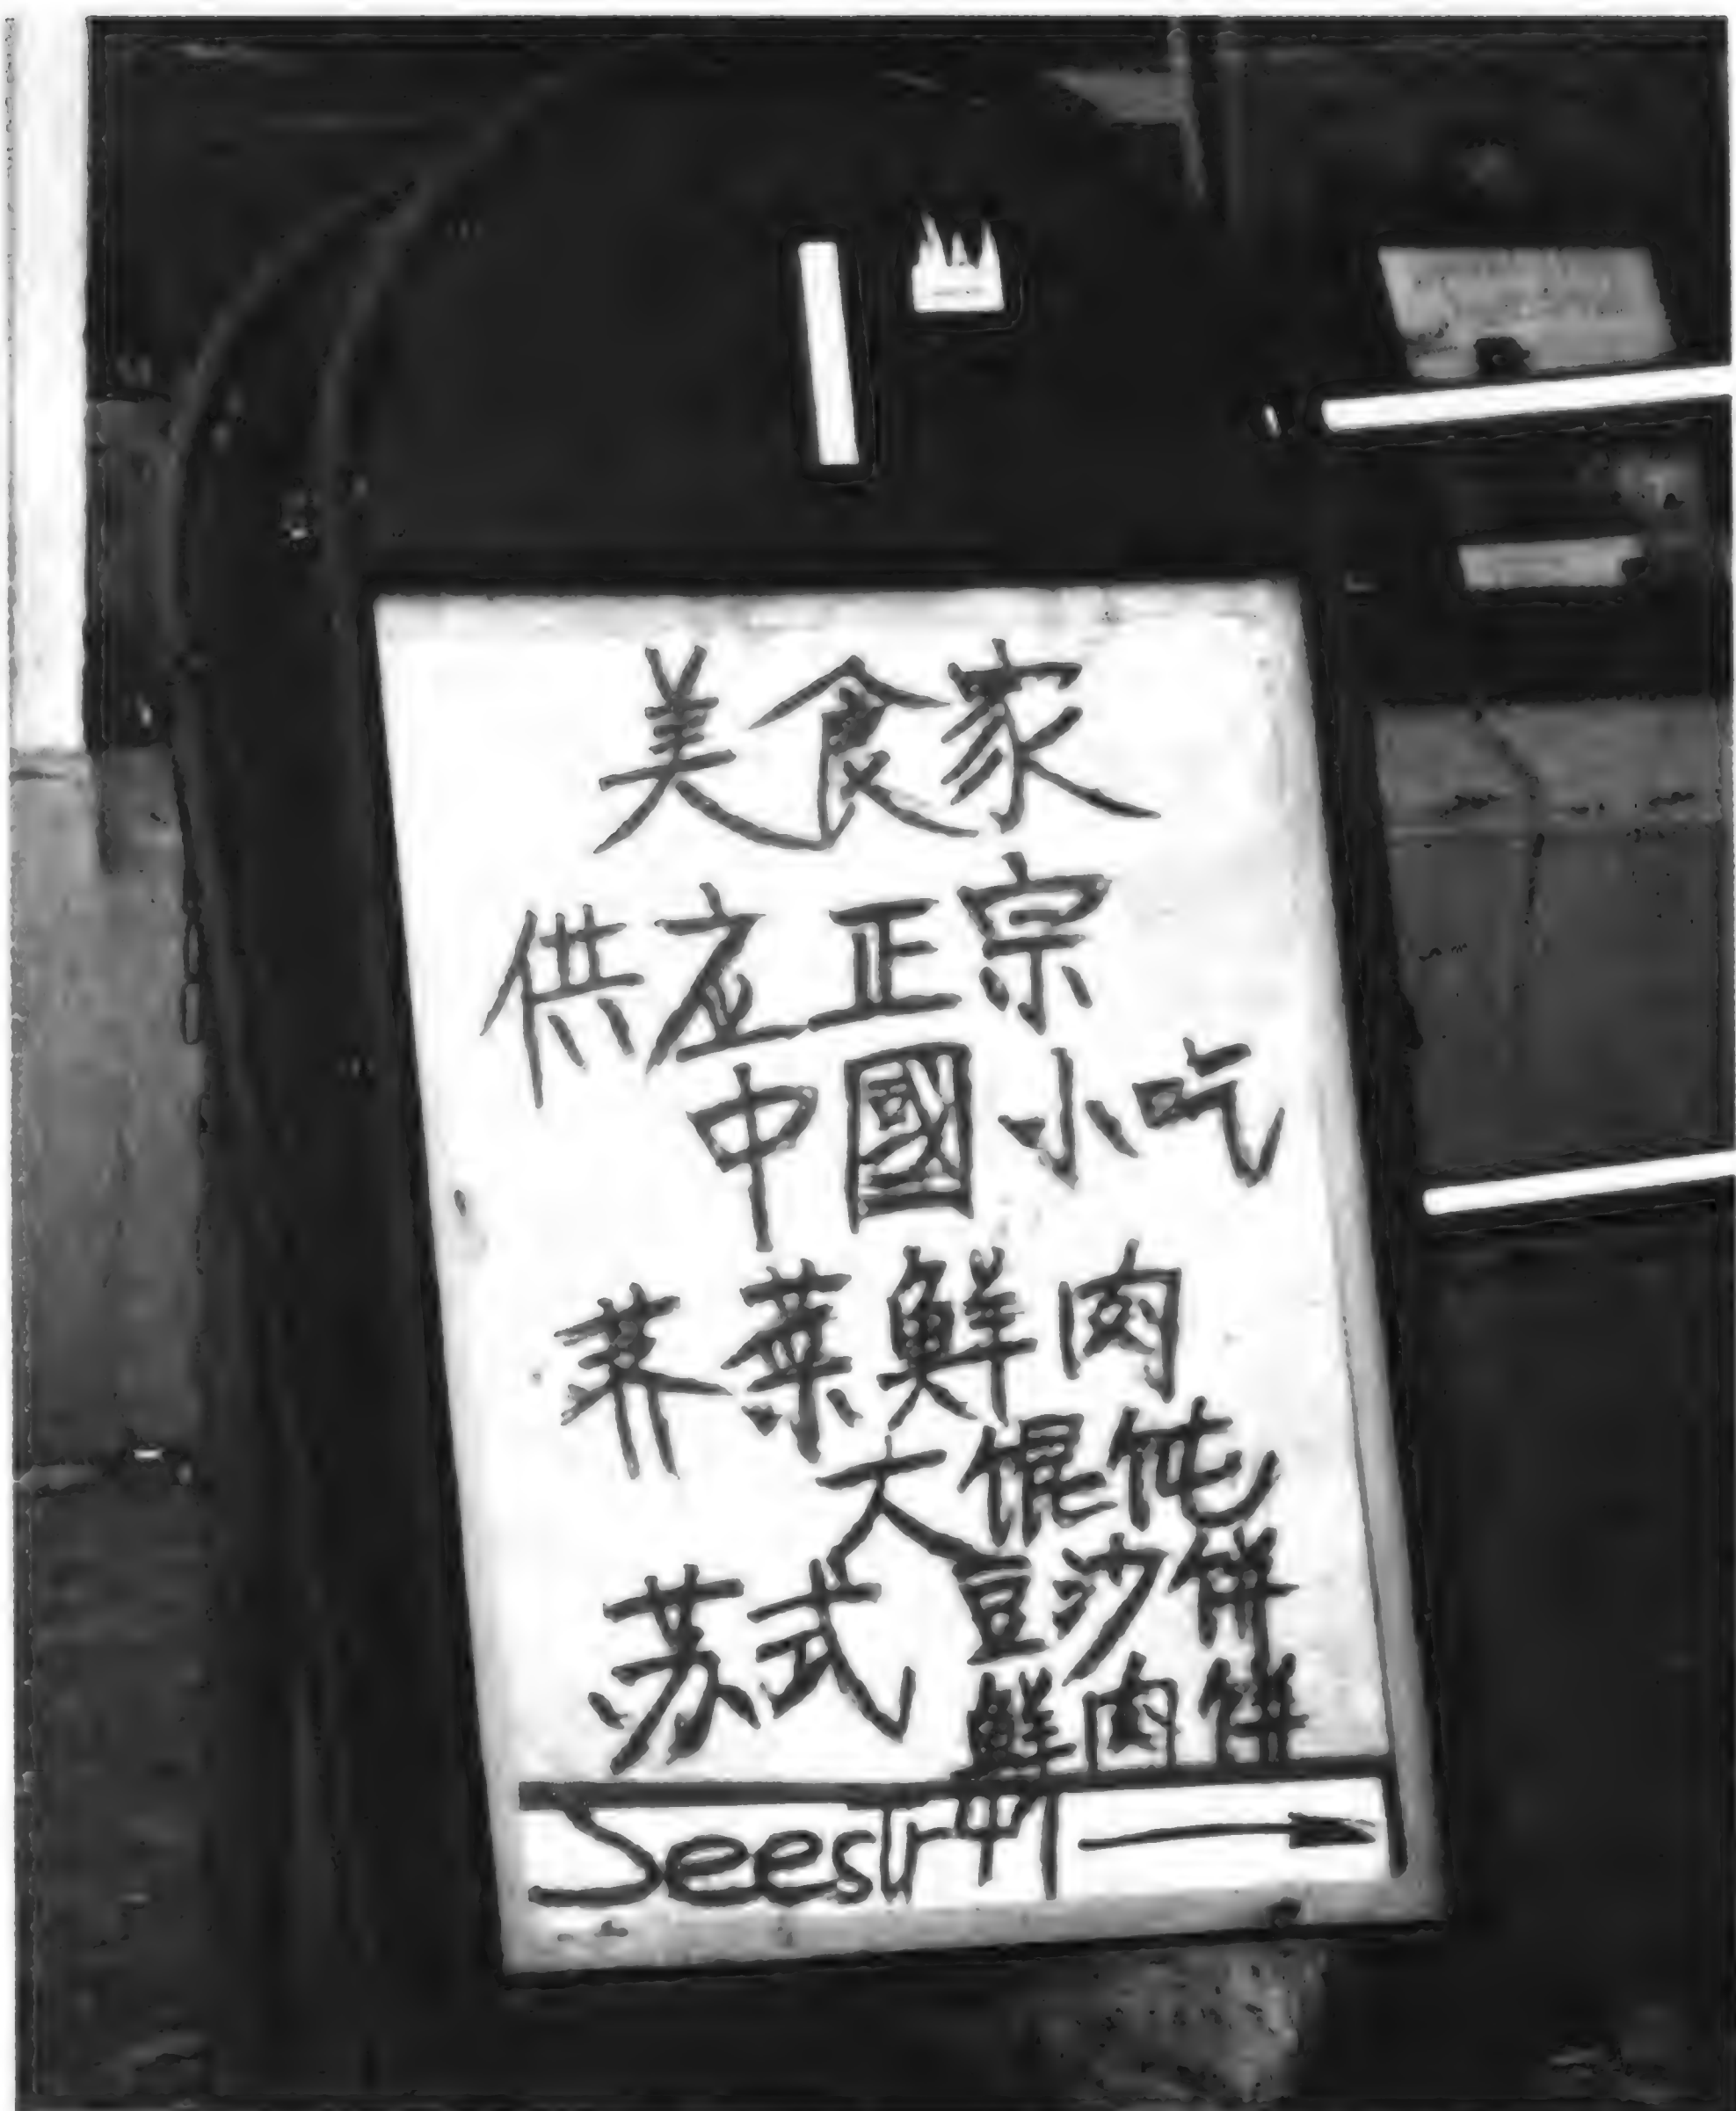 美食家
供应正宗
中國小吃
荠菜鮮肉
大馄饨
苏式豆沙餅
鲜肉餅
Seestr 41 →